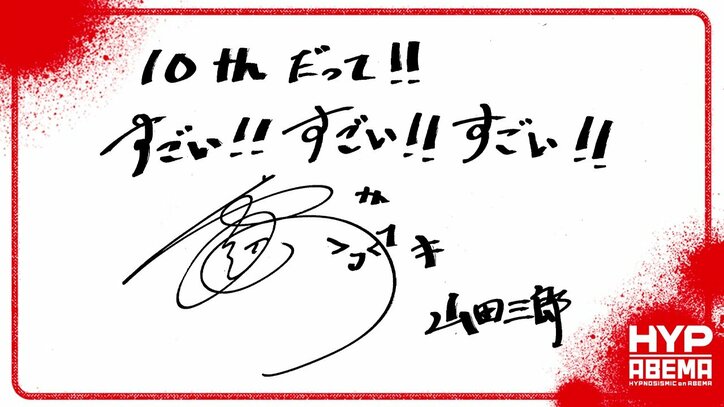 10thだって!!
すごい!! すごい!! すごい!!
山田三郎
HYP
ABEMA
HYPNOSISMIC on ABEMA